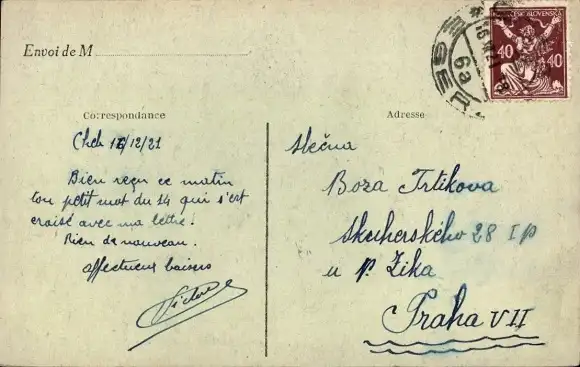 Envoi de M
Correspondance
Adresse
40 40
EGER
6a
Cheb 16/12/21
Bien reçu ce matin
ton petit mot du 14 qui s'est
croisé avec ma lettre.
Rien de nouveau.
affectueux baisers
Slečna
Boza Trtikova
Skuherského 28 I p
u p. Zika
Praha VII